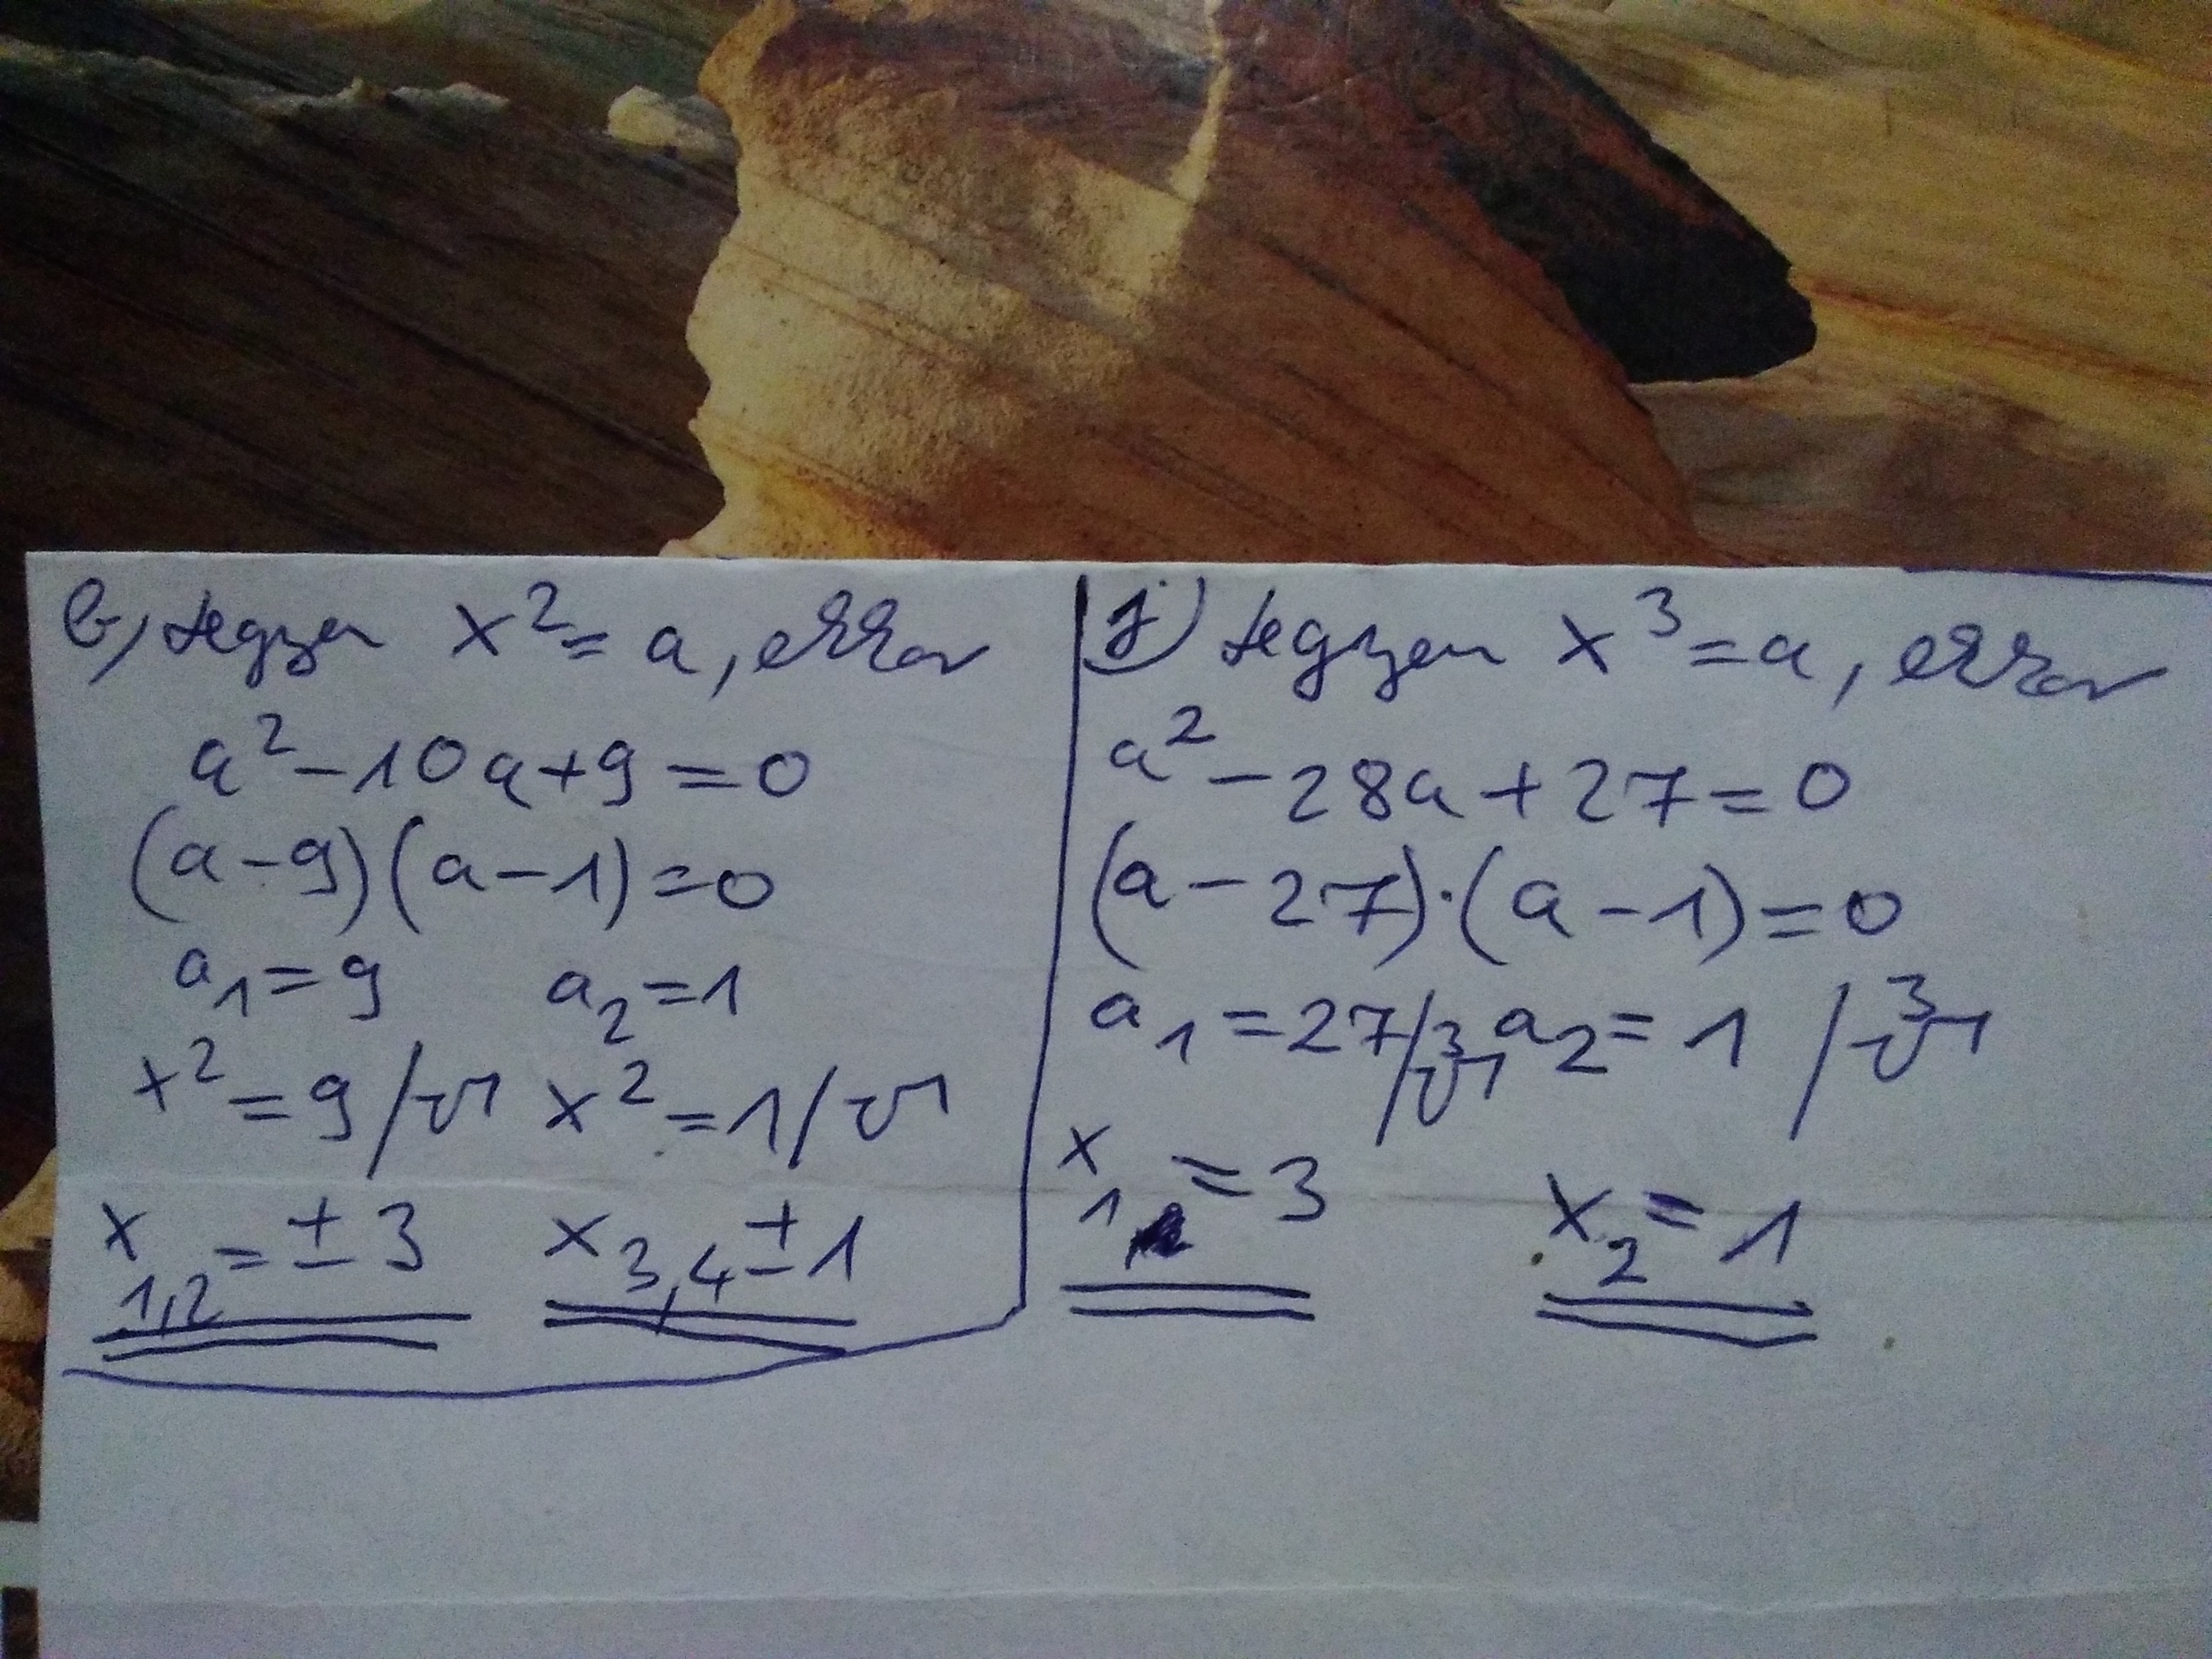 b, legyen x² = a, ekkor
a² - 10a + 9 = 0
(a - 9)(a - 1) = 0
a₁ = 9 a₂ = 1
x² = 9 /√ x² = 1 /√
x₁,₂ = ± 3 x₃,₄ ± 1
f) legyen x³ = a, ekkor
a² - 28a + 27 = 0
(a - 27)·(a - 1) = 0
a₁ = 27 /³√ a₂ = 1 /³√
x₁ = 3 x₂ = 1